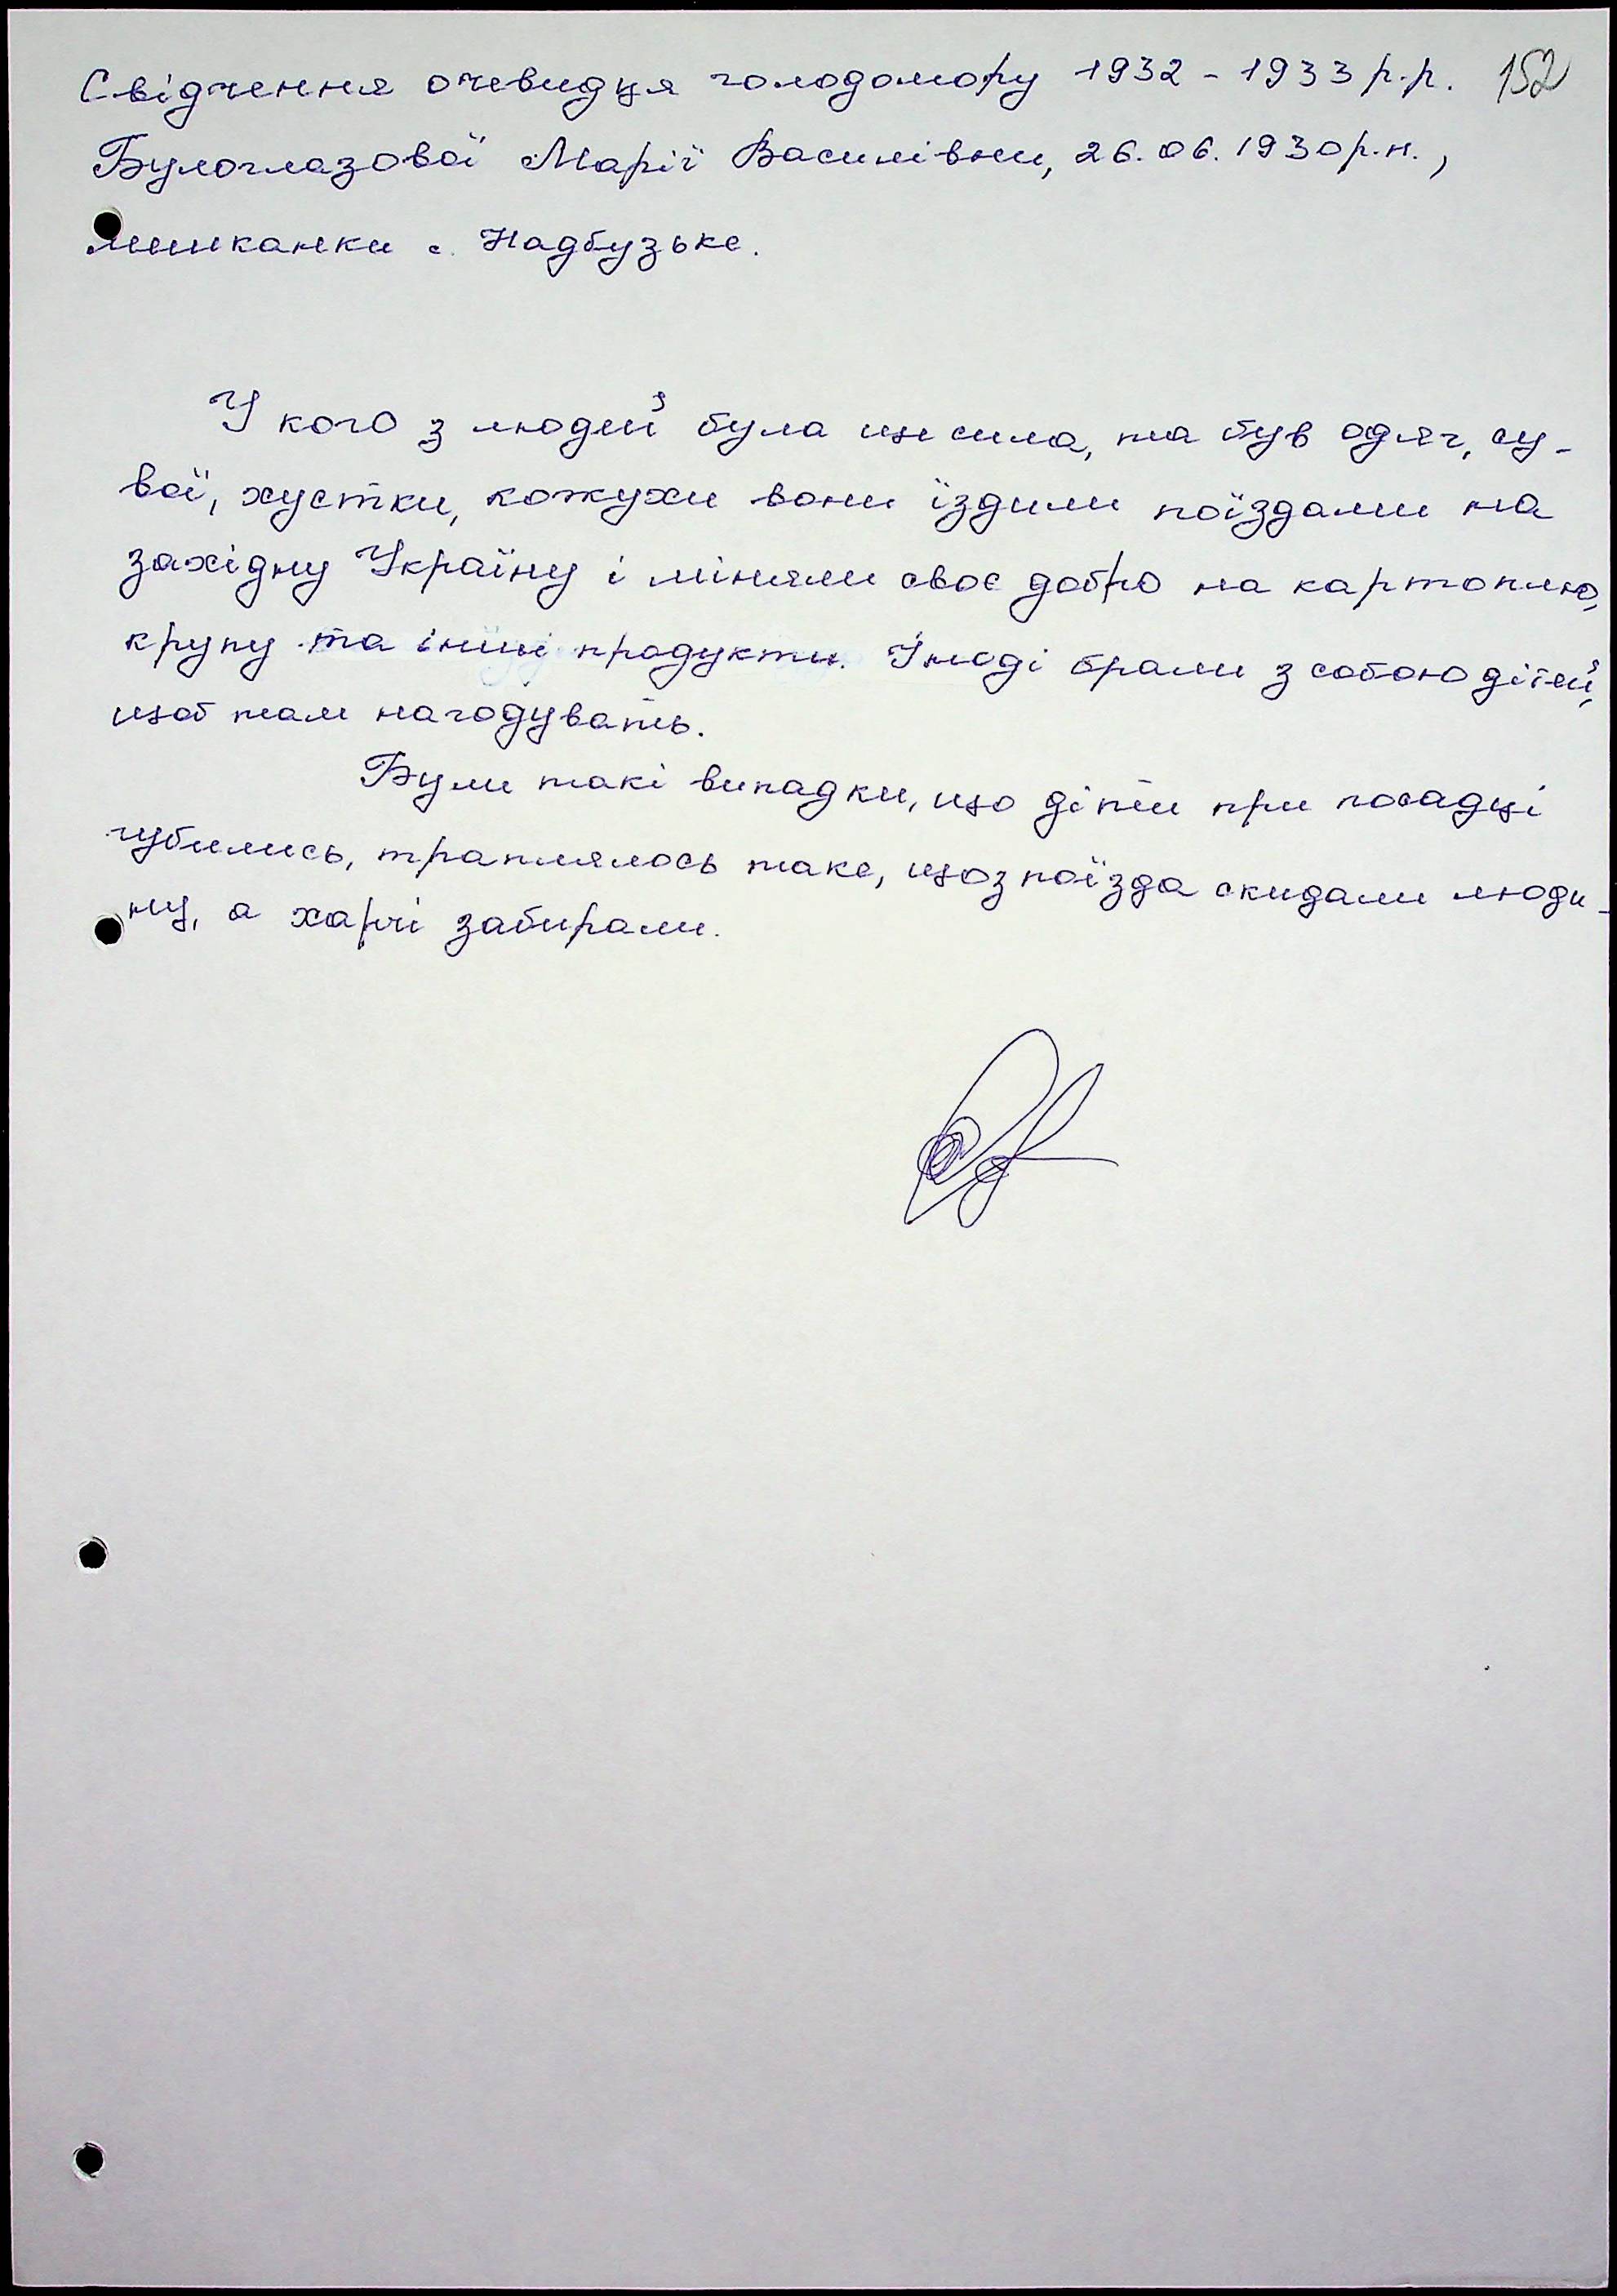 Свідчення очевидця голодомору 1932 - 1933 р.р. 152
Булоглазової Марії Василівни, 26.06.1930р.н.,
мешканки с. Надбузьке.
У кого з людей була ще сила, та був одяг, су-
вої, хустки, кожухи вони їздили поїздами на
західну Україну і міняли своє добро на картоплю,
крупу та інші продукти. Іноді брали з собою дітей,
щоб там нагодувать.
Були такі випадки, що діти при посадці
губились, траплялось таке, що з поїзда скидали люди-
ну, а харчі забирали.